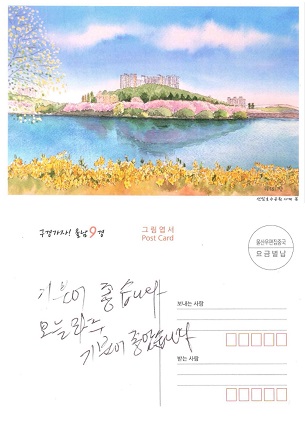 선암호수공원 사계 봄
구경가자! 울남 9경
그림엽서
Post Card
울산우편집중국
요금별납
기분이 좋습니다
오늘하루
기분이 좋았습니다
보내는 사람
받는 사람